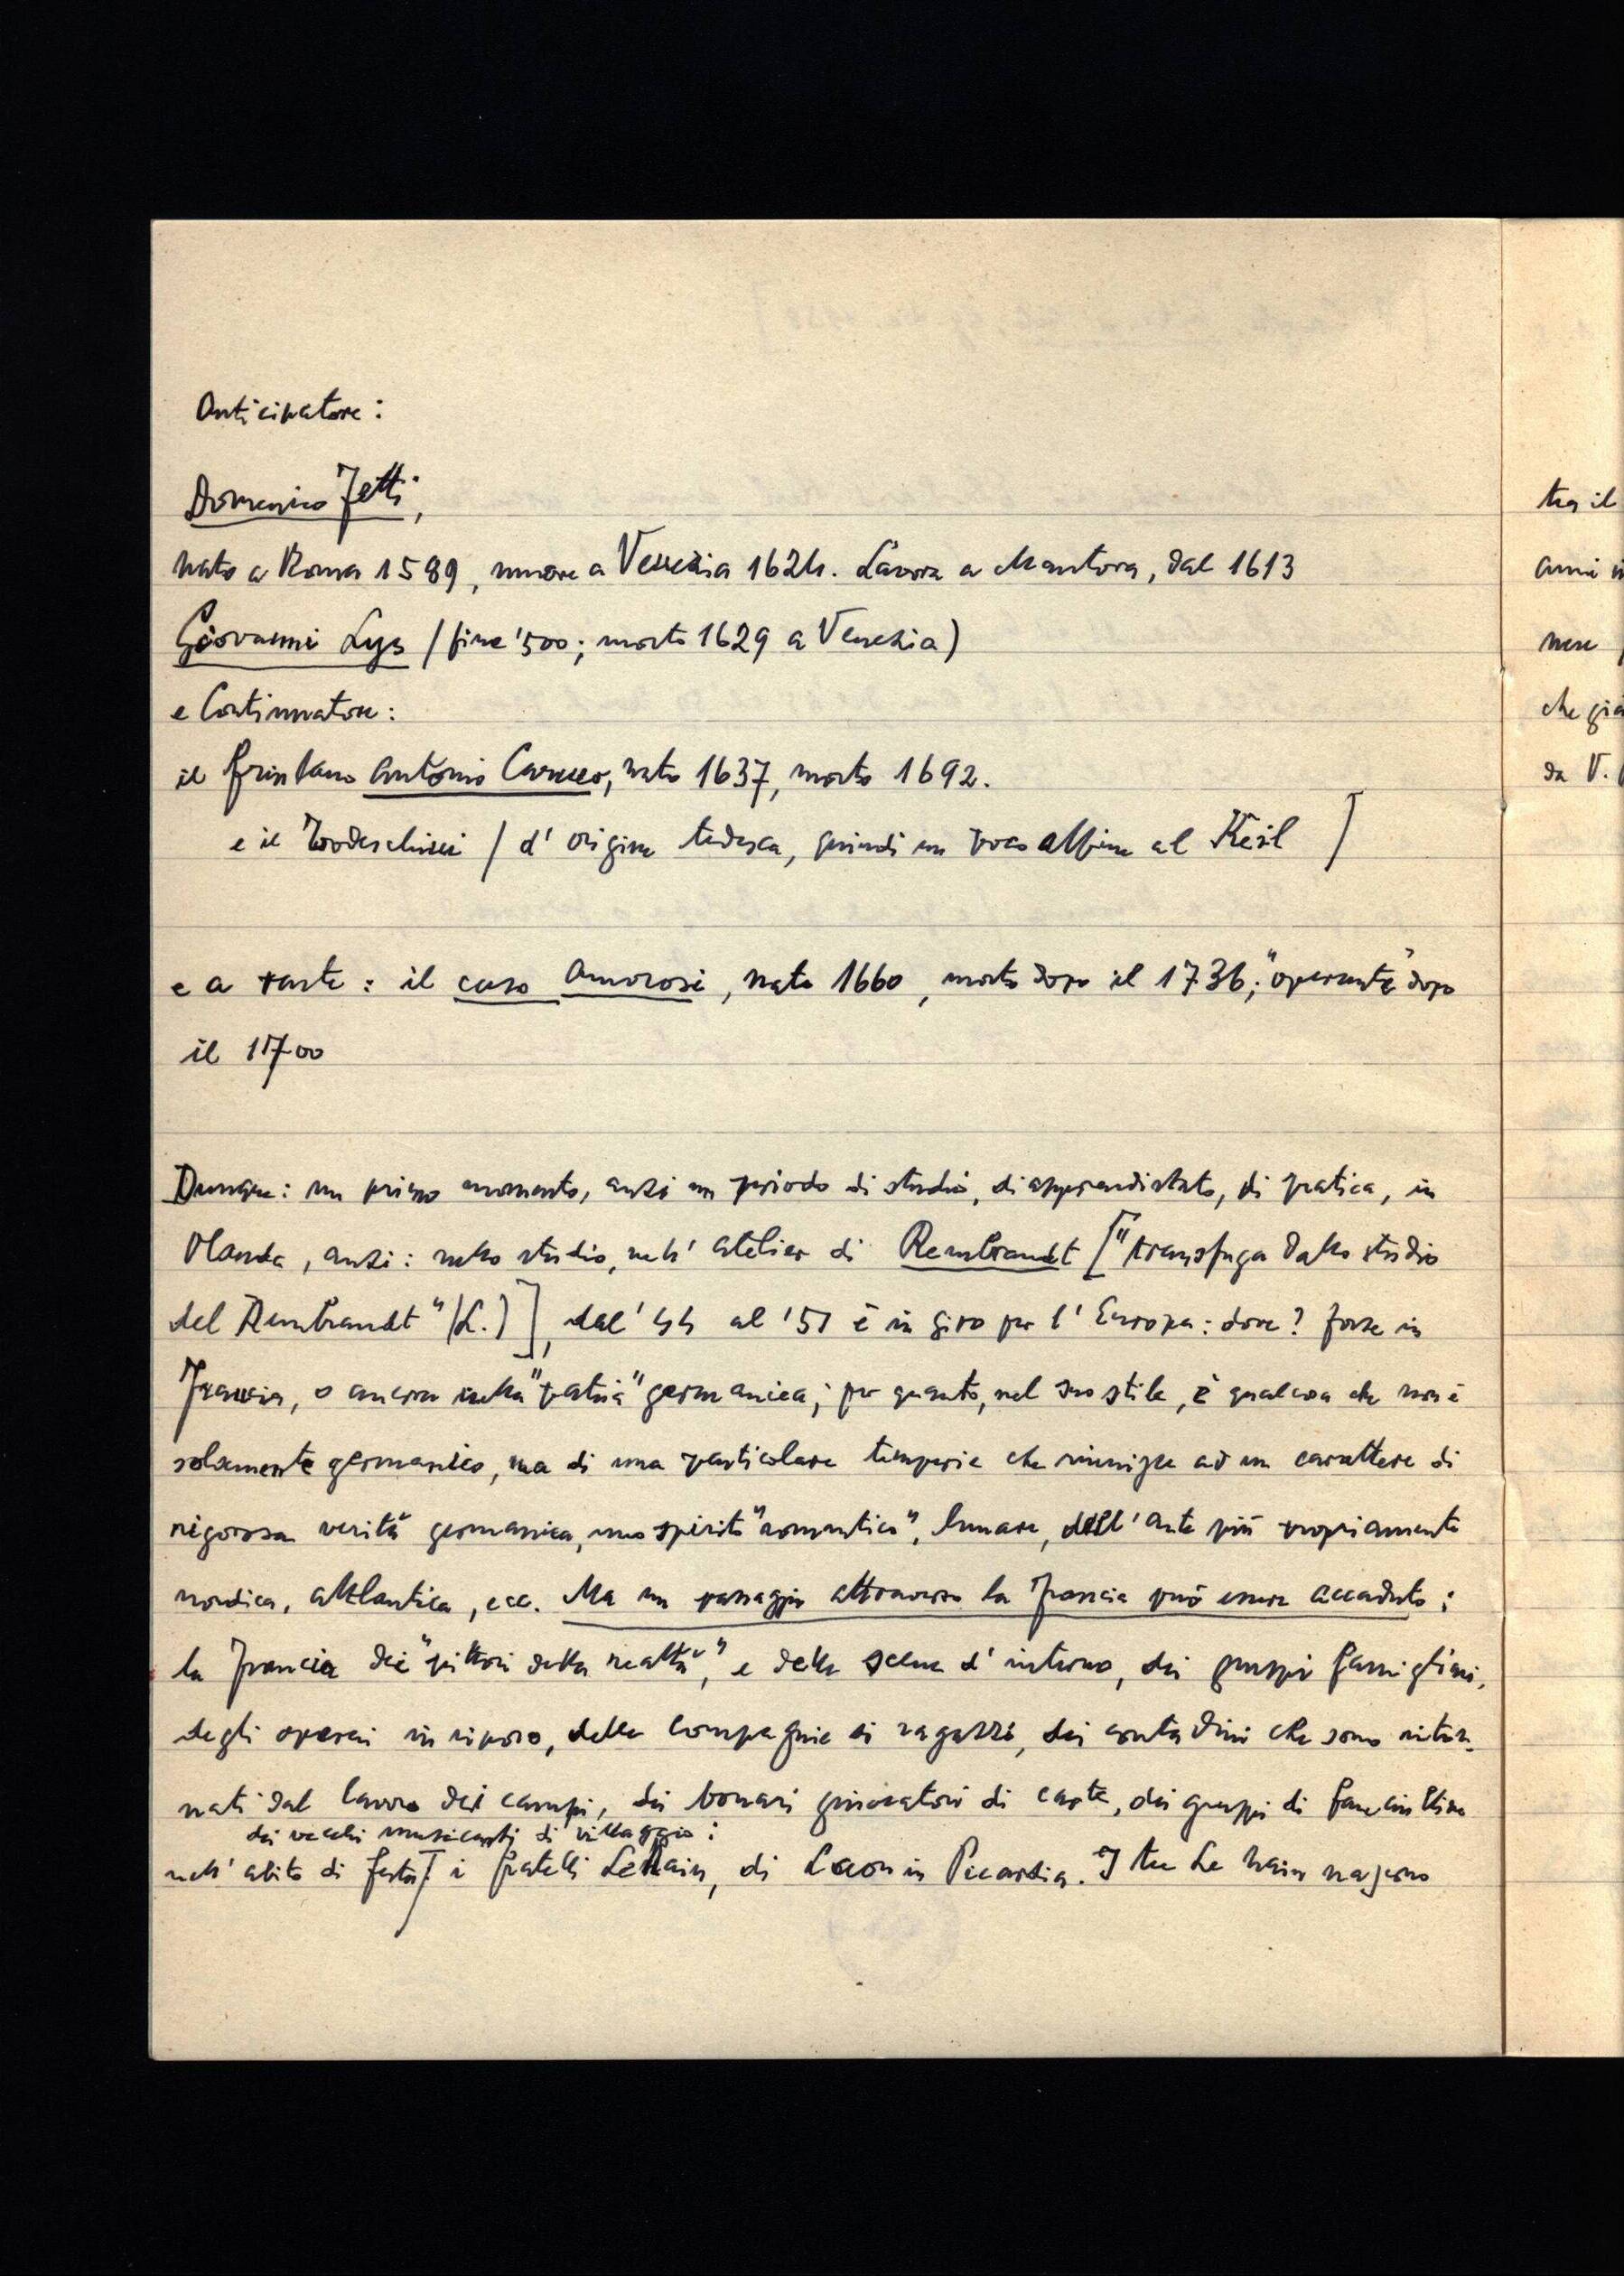 Anticipatore:
Domenico Fetti,
nato a Roma 1589, muore a Venezia 1624. Lavora a Mantova, dal 1613
Giovanni Lys (fine '500; morto 1629 a Venezia)
e Continuatore:
il friulano Antonio Carneo, nato 1637, morto 1692.
e il Todeschini (d' origine tedesca, quindi un poco affine al Keil )
e a parte: il caso Amorosi, nato 1660, morto dopo il 1736; "operante" dopo
il 1700
Dunque: un primo momento, anzi un periodo di studio, di apprendistato, di pratica, in
Olanda, anzi: nello studio, nell' atelier di Rembrandt ["transfuga dallo studio
del Rembrandt" (L.)], dal '44 al '51 è in giro per l' Europa: dove? forse in
Francia, o ancora nella "patria" germanica; per quanto, nel suo stile, è qualcosa che non è
solamente germanico, ma di una particolare temperie che riunisce ad un carattere di
rigorosa verità germanica, uno spirito "romantico", lunare, dell' arte più propriamente
nordica, atlantica, ecc. Ma un passaggio attraverso la Francia può essere accaduto:
la Francia dei "pittori della realtà", e delle scene d' interno, dei gruppi famigliari,
degli operai in riposo, delle compagnie di ragazzi, dei contadini che sono ritor-
nati dal lavoro dei campi, dei bonari giuocatori di carte, dei gruppi di fanciulline
dei vecchi musicanti di villaggio:
nell' abito di festa, i fratelli Le Nain, di Laon in Piccardia. I tre Le Nain nascono
tra il
anni
nere
che già
da V.